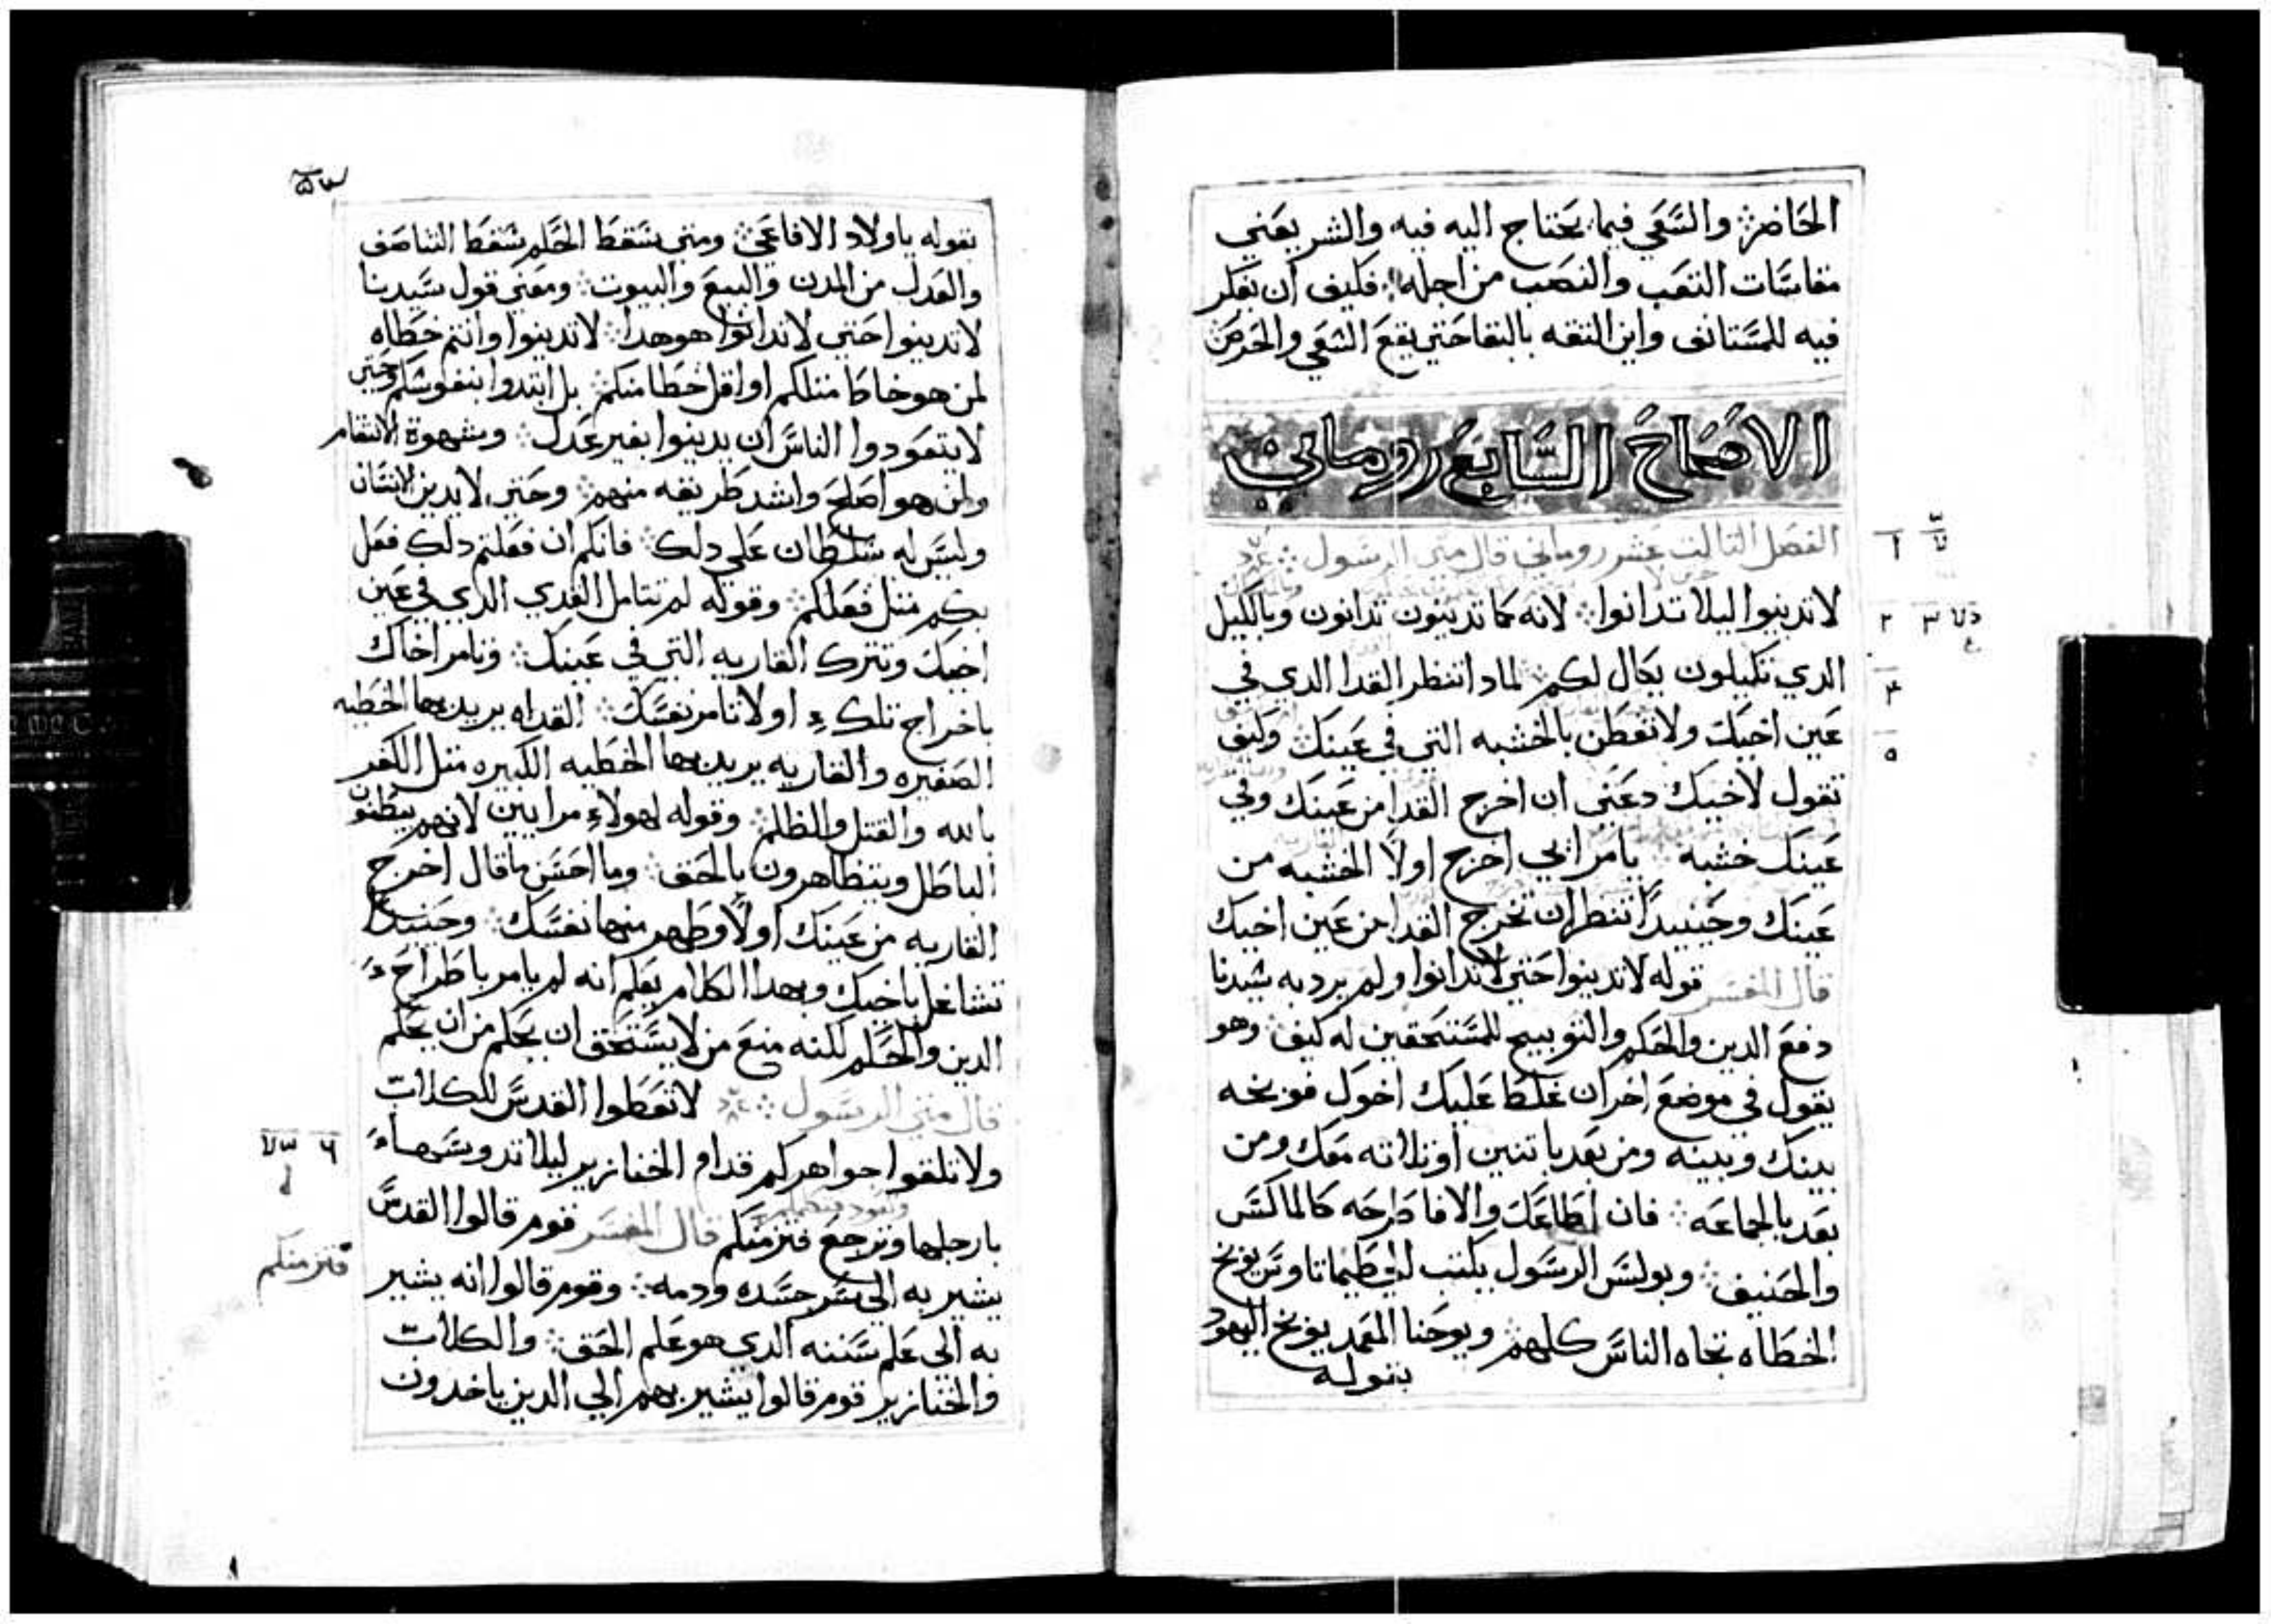 الحاضر والسعي فيما يحتاج اليه فيه والشر يعني
مقاسات التعب والنصب من اجله فكيف ان يفكر
فيه للمستانف واين الثقه بالبقا حتي يقع السعي والحرص
الاصحاح السابع روماني
الفصل التالت عشر روماني قال متي الرسول
لا تدينوا ليلا تدانوا لانه كما تدينون تدانون وبالكيل
الدي تكيلون يكال لكم لمادا تنظر القدا الدي في
عين اخيك ولا تفطن بالخشبه التي في عينك وكيف
تقول لاخيك دعني ان اخرج القدا من عينك وفي
عينك خشبه يا مرائي اخرج اولا الخشبه من
عينك وحينيدا تنظر ان تخرج القدا من عين اخيك
قال المفسر قوله لا تدينوا حتي لا تدانوا ولم يرد به سيدنا
دفع الدين والحكم والتوبيخ للمستحقين له كيف وهو
يقول في موضع اخر ان غلط عليك اخوك فوبخه
بينك وبينه ومن بعد باتنين او تلاته معك ومن
بعد بالجماعه فان اطاعك والا فاطرحه كالماكس
والحنيف وبولس الرسول يكتب الي طيماتاوس يوبخ
الخطاه تجاه الناس كلهم ويوحنا المعمد يوبخ اليهود
بقوله
بقوله ياولاد الافاعي ومتي سقط الحكم سقط التناصف
والعدل من المدن والبيع والبيوت ومعني قول سيدنا
لا تدينوا حتي لا تدانوا هو هدا لا تدينوا وانتم خطاه
لمن هو خاطا متلكم او اقل خطا منكم بل ابتدوا بنفوسكم وحتي
لا يتعودوا الناس ان يدينوا بغير عدل وشهوة الانتقام
ولمن هو اصلح واشد طريقه منهم وحتي لا يدين الانسان
وليس له سلطان علي دلك فانكم ان فعلتم دلك فعل
بكم متل فعلكم وقوله لم تتامل القدي الدي في عين
اخيك وتترك القاريه التي في عينك وتامر اخاك
باخراج تلك اولا تامر نفسك القداه يريد بها الخطيه
الصغيره والقاريه يريد بها الخطيه الكبيره متل الكفر
بالله والقتل والظلم وقوله لهولاء مرايين لانهم يبطنو
الباطل ويتظاهرون بالحق وما احسن ما قال اخرج
القاريه من عينك اولا وطهر منها نفسك وحينيدا
تشاغل باخيك وبهدا الكلام يعلم انه لم يامر باطراح
الدين والحكم لكنه منع من لا يستحق ان يحكم من ان يحكم
قال متي الرسول لا تعطوا القدس للكلاب
ولا تلقوا جواهركم قدام الخنازير ليلا تدوسها
بارجلها وترجع فتزمنكم قال المفسر قوم قالوا القدس
يشير به الي سر جسده ودمه وقوم قالوا انه يشير
به الي علم سننه الدي هو علم الحق والكلاب
والخنازير قوم قالوا يشير بهم الي الدين ياخدون
٦
فتزمنكم